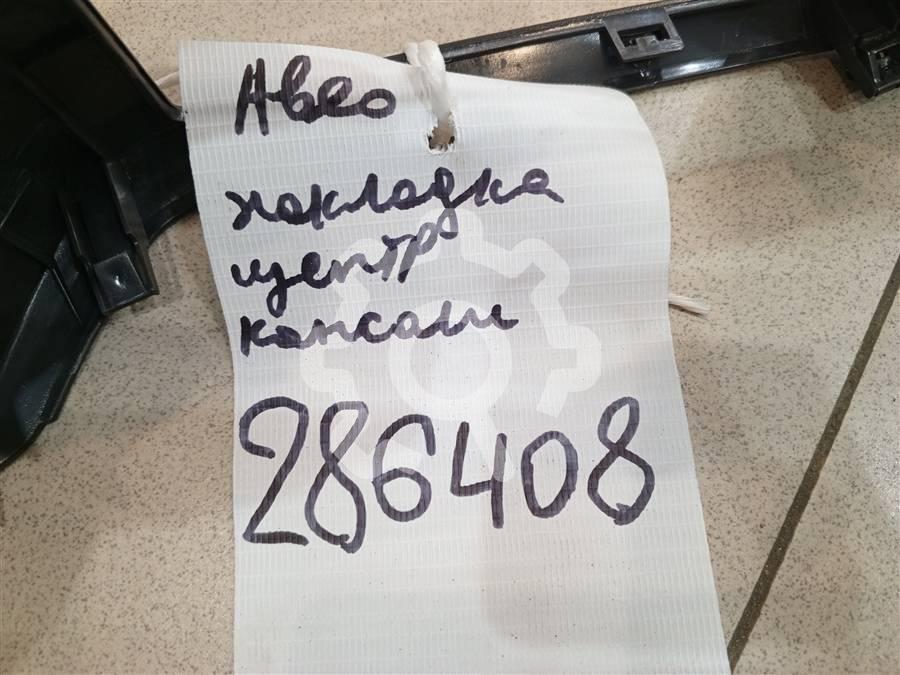 Авео
накладка
центр
консоли
286408